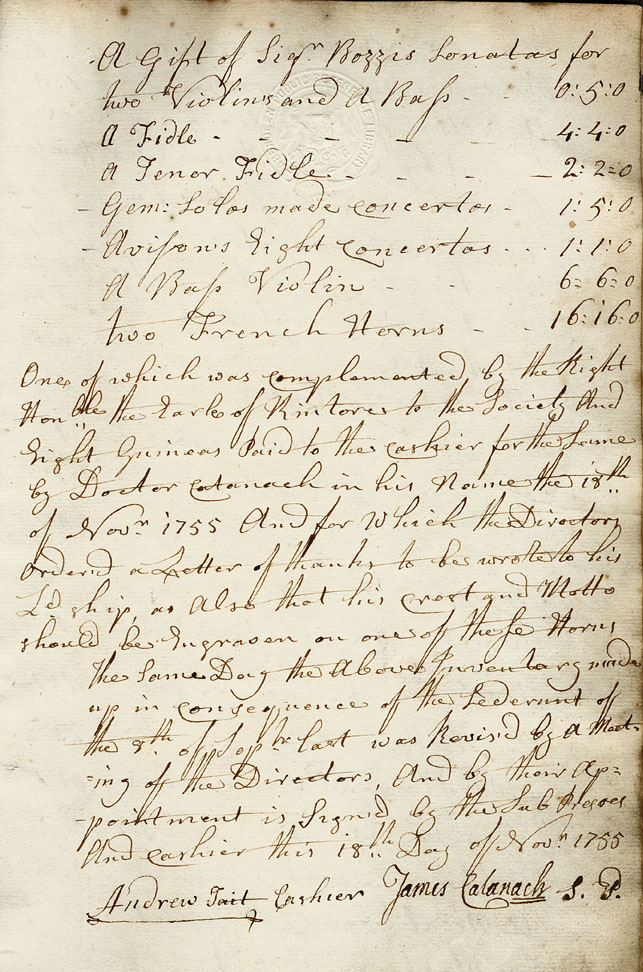 A Gift of Sigr. Bozzis Sonatas for
two Violins and A Bass - - 0:5:0
A Fidle - - - - - 4:4:0
A Tenor Fidle - - - - 2:2:0
- Gem: Solos made concertos - 1:5:0
- Avisons Eight Concertos - - - 1:1:0
A Bass Violin - - 6:6:0
two French Horns - - 16:16:0
One of which was complemented by the Right
Honble. the Earle of Kintore to the Society And
Eight Guineas Paid to the Cashier for the Same
by Doctor Catanach in his Name the 18th
of Novr. 1755 And for Which the Directors
ordered a Letter of thanks to be wrote to his
Ldship, as Also that his Crest and Motto
should be Engraven on one of these Horns
The Same Day the Above Inventary made
up in consequence of the Sederunt of
the 8th. of Sepbr last was Revis'd by a Meet-
=ing of the Directors, And by their Ap=
-pointment is Sign'd by the Sub Preses
And Cashier this 18th Day of Novr. 1755
Andrew Tait Cashier James Catanach S. P.